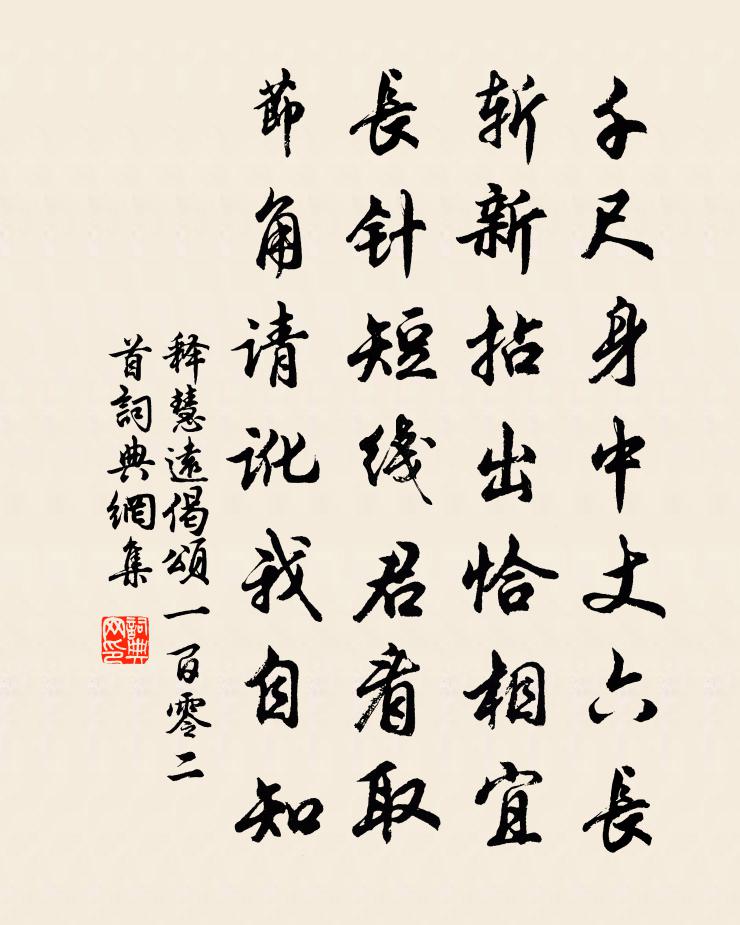 千尺身中丈六長
斬新拈出恰相宜
長针短线君看取
節角请讹我自知
释慧遠偈頌一百零二
首詞典網集
詞典
网印